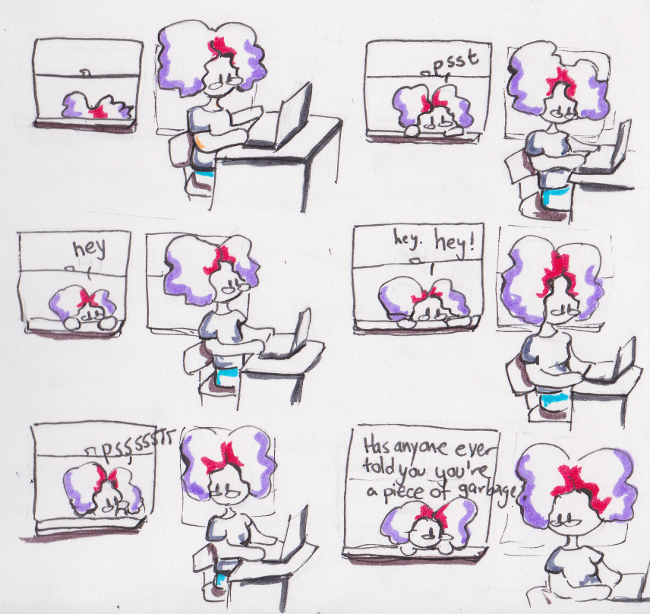 psst
hey
hey. hey!
psssssTT
Has anyone ever
told you you're
a piece of garbage